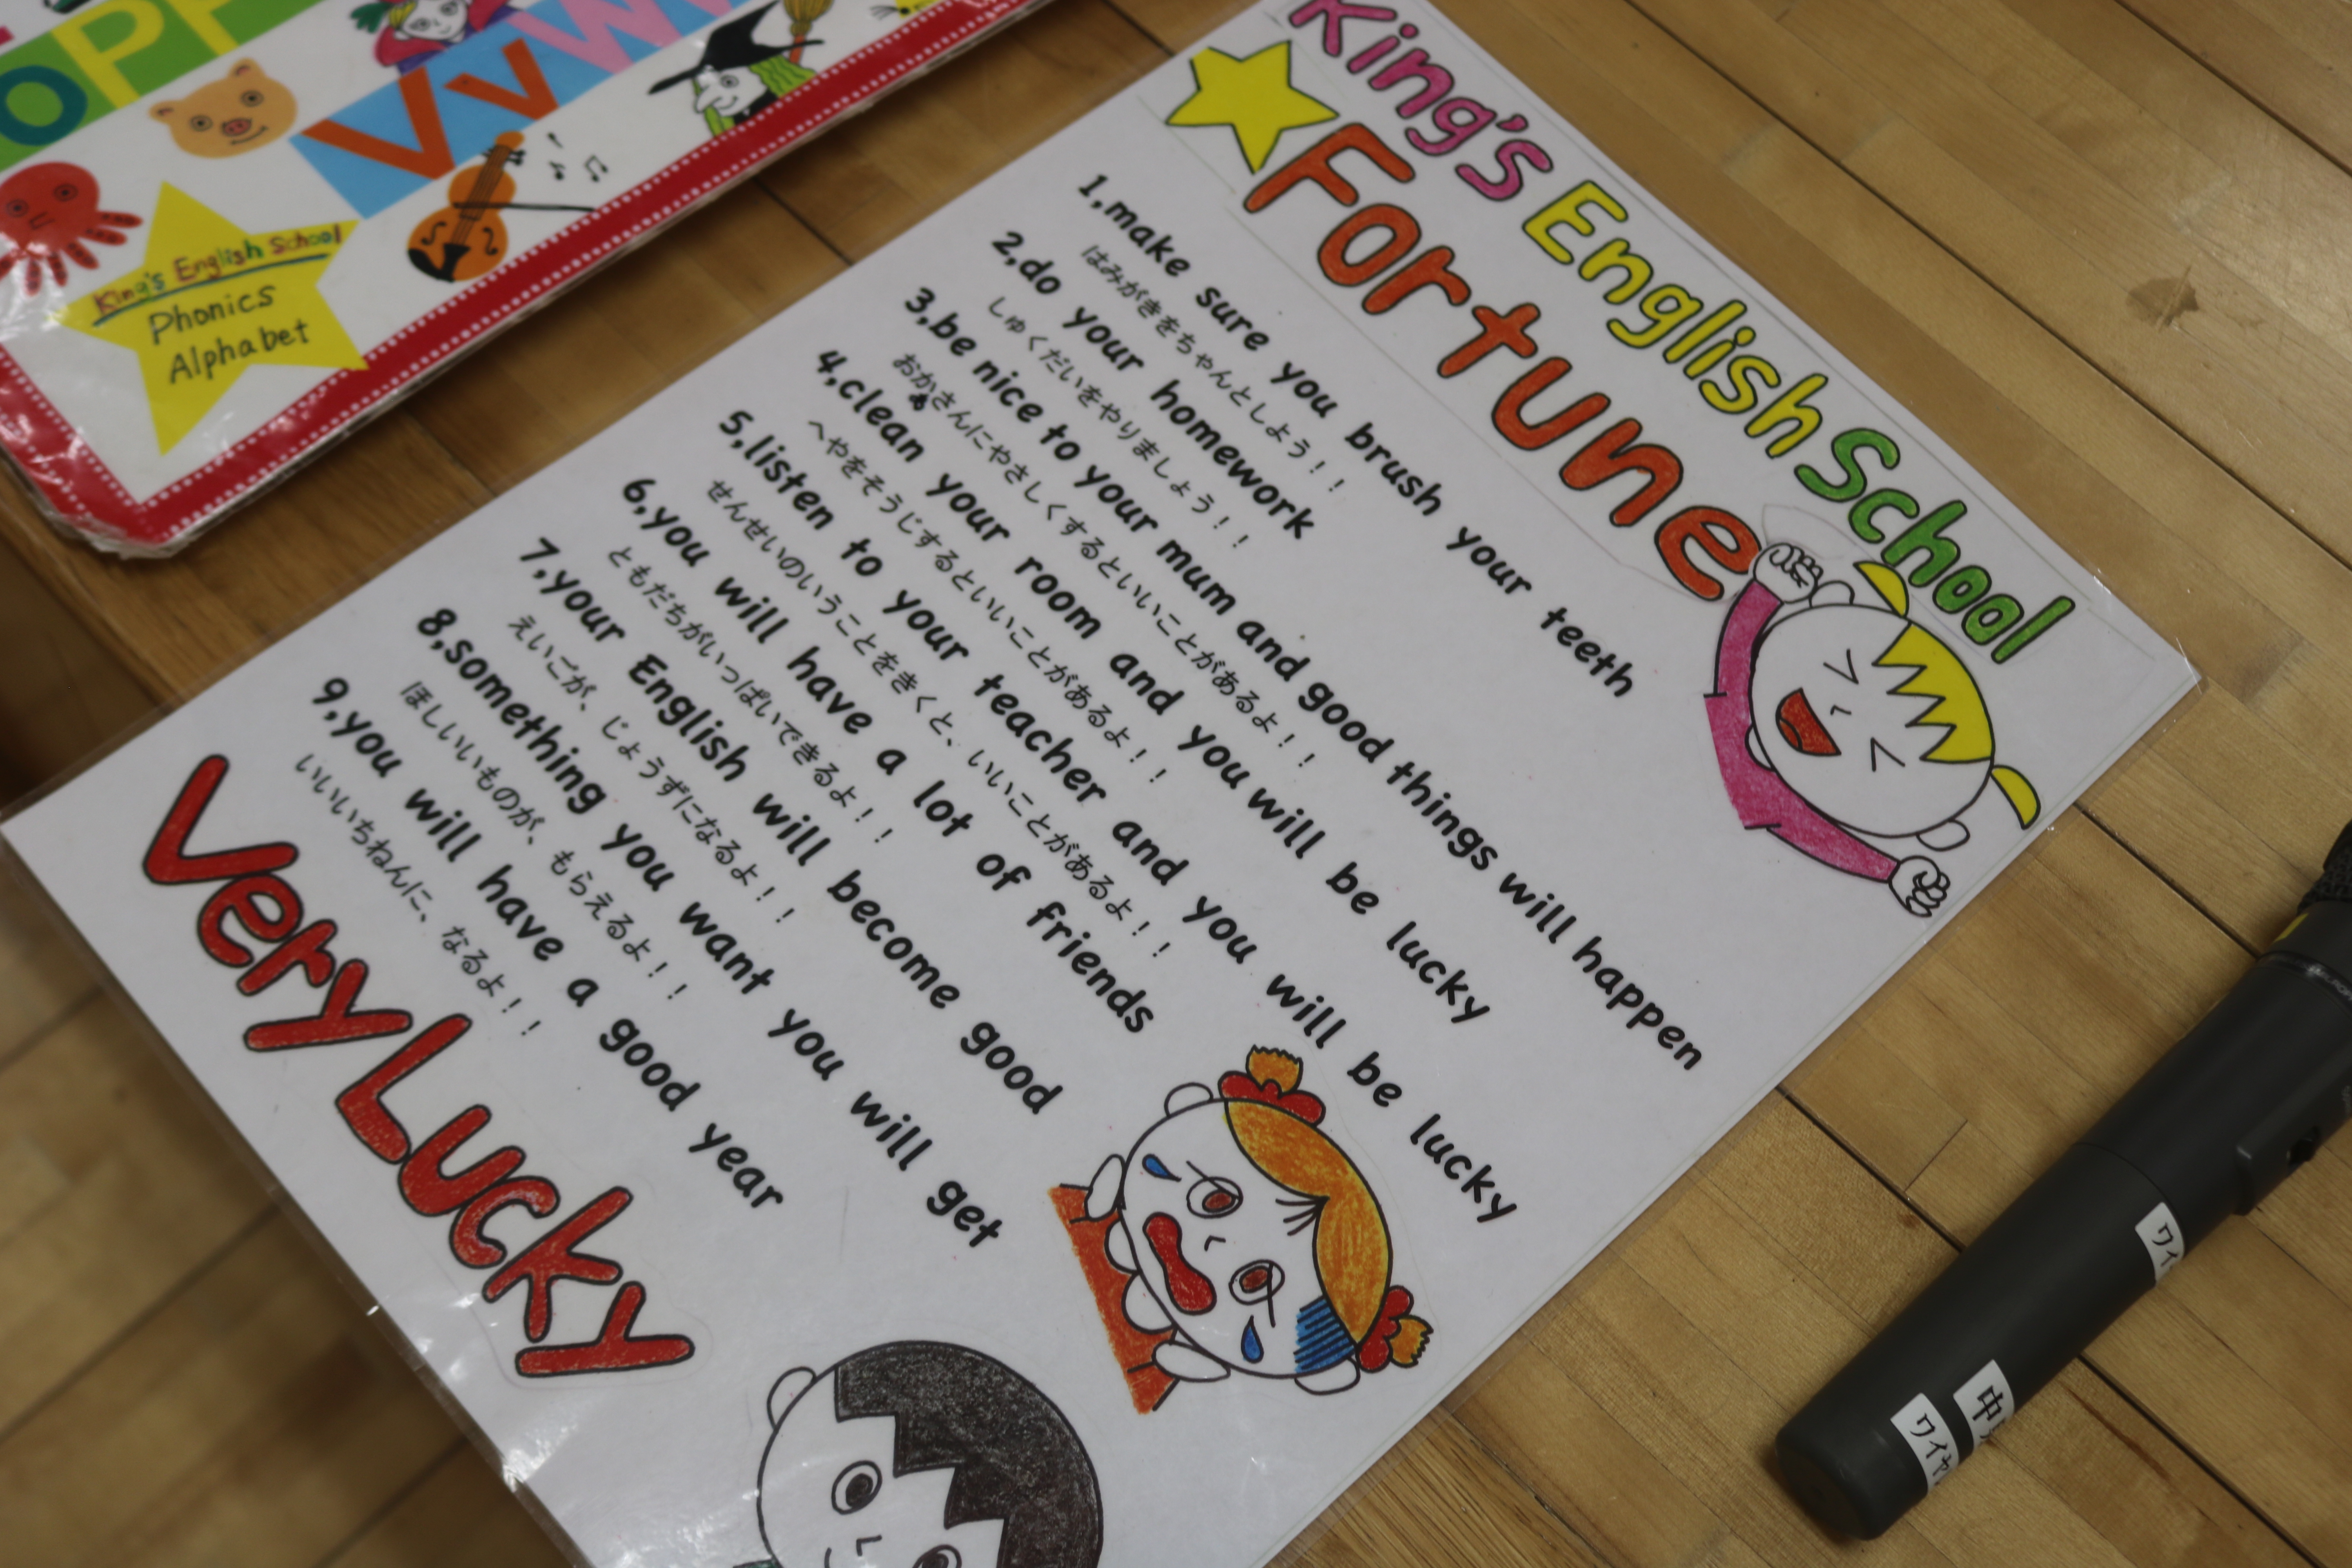 o P
V v W
King's English School
Phonics
Alphabet
King's English School
Fortune
1,make sure you brush your teeth
はみがきをちゃんとしよう！！
2,do your homework
しゅくだいをやりましょう！！
3,be nice to your mum and good things will happen
おかあさんにやさしくするといいことがあるよ！！
4,clean your room and you will be lucky
へやをそうじするといいことがあるよ！！
5,listen to your teacher and you will be lucky
せんせいのいうことをきくと、いいことがあるよ！！
6,you will have a lot of friends
ともだちがいっぱいできるよ！！
7,your English will become good
えいごが、じょうずになるよ！！
8,something you want you will get
ほしいいものが、もらえるよ！！
9,you will have a good year
いいいちねんに、なるよ！！
Very Lucky
ワイ
中
ワイヤ